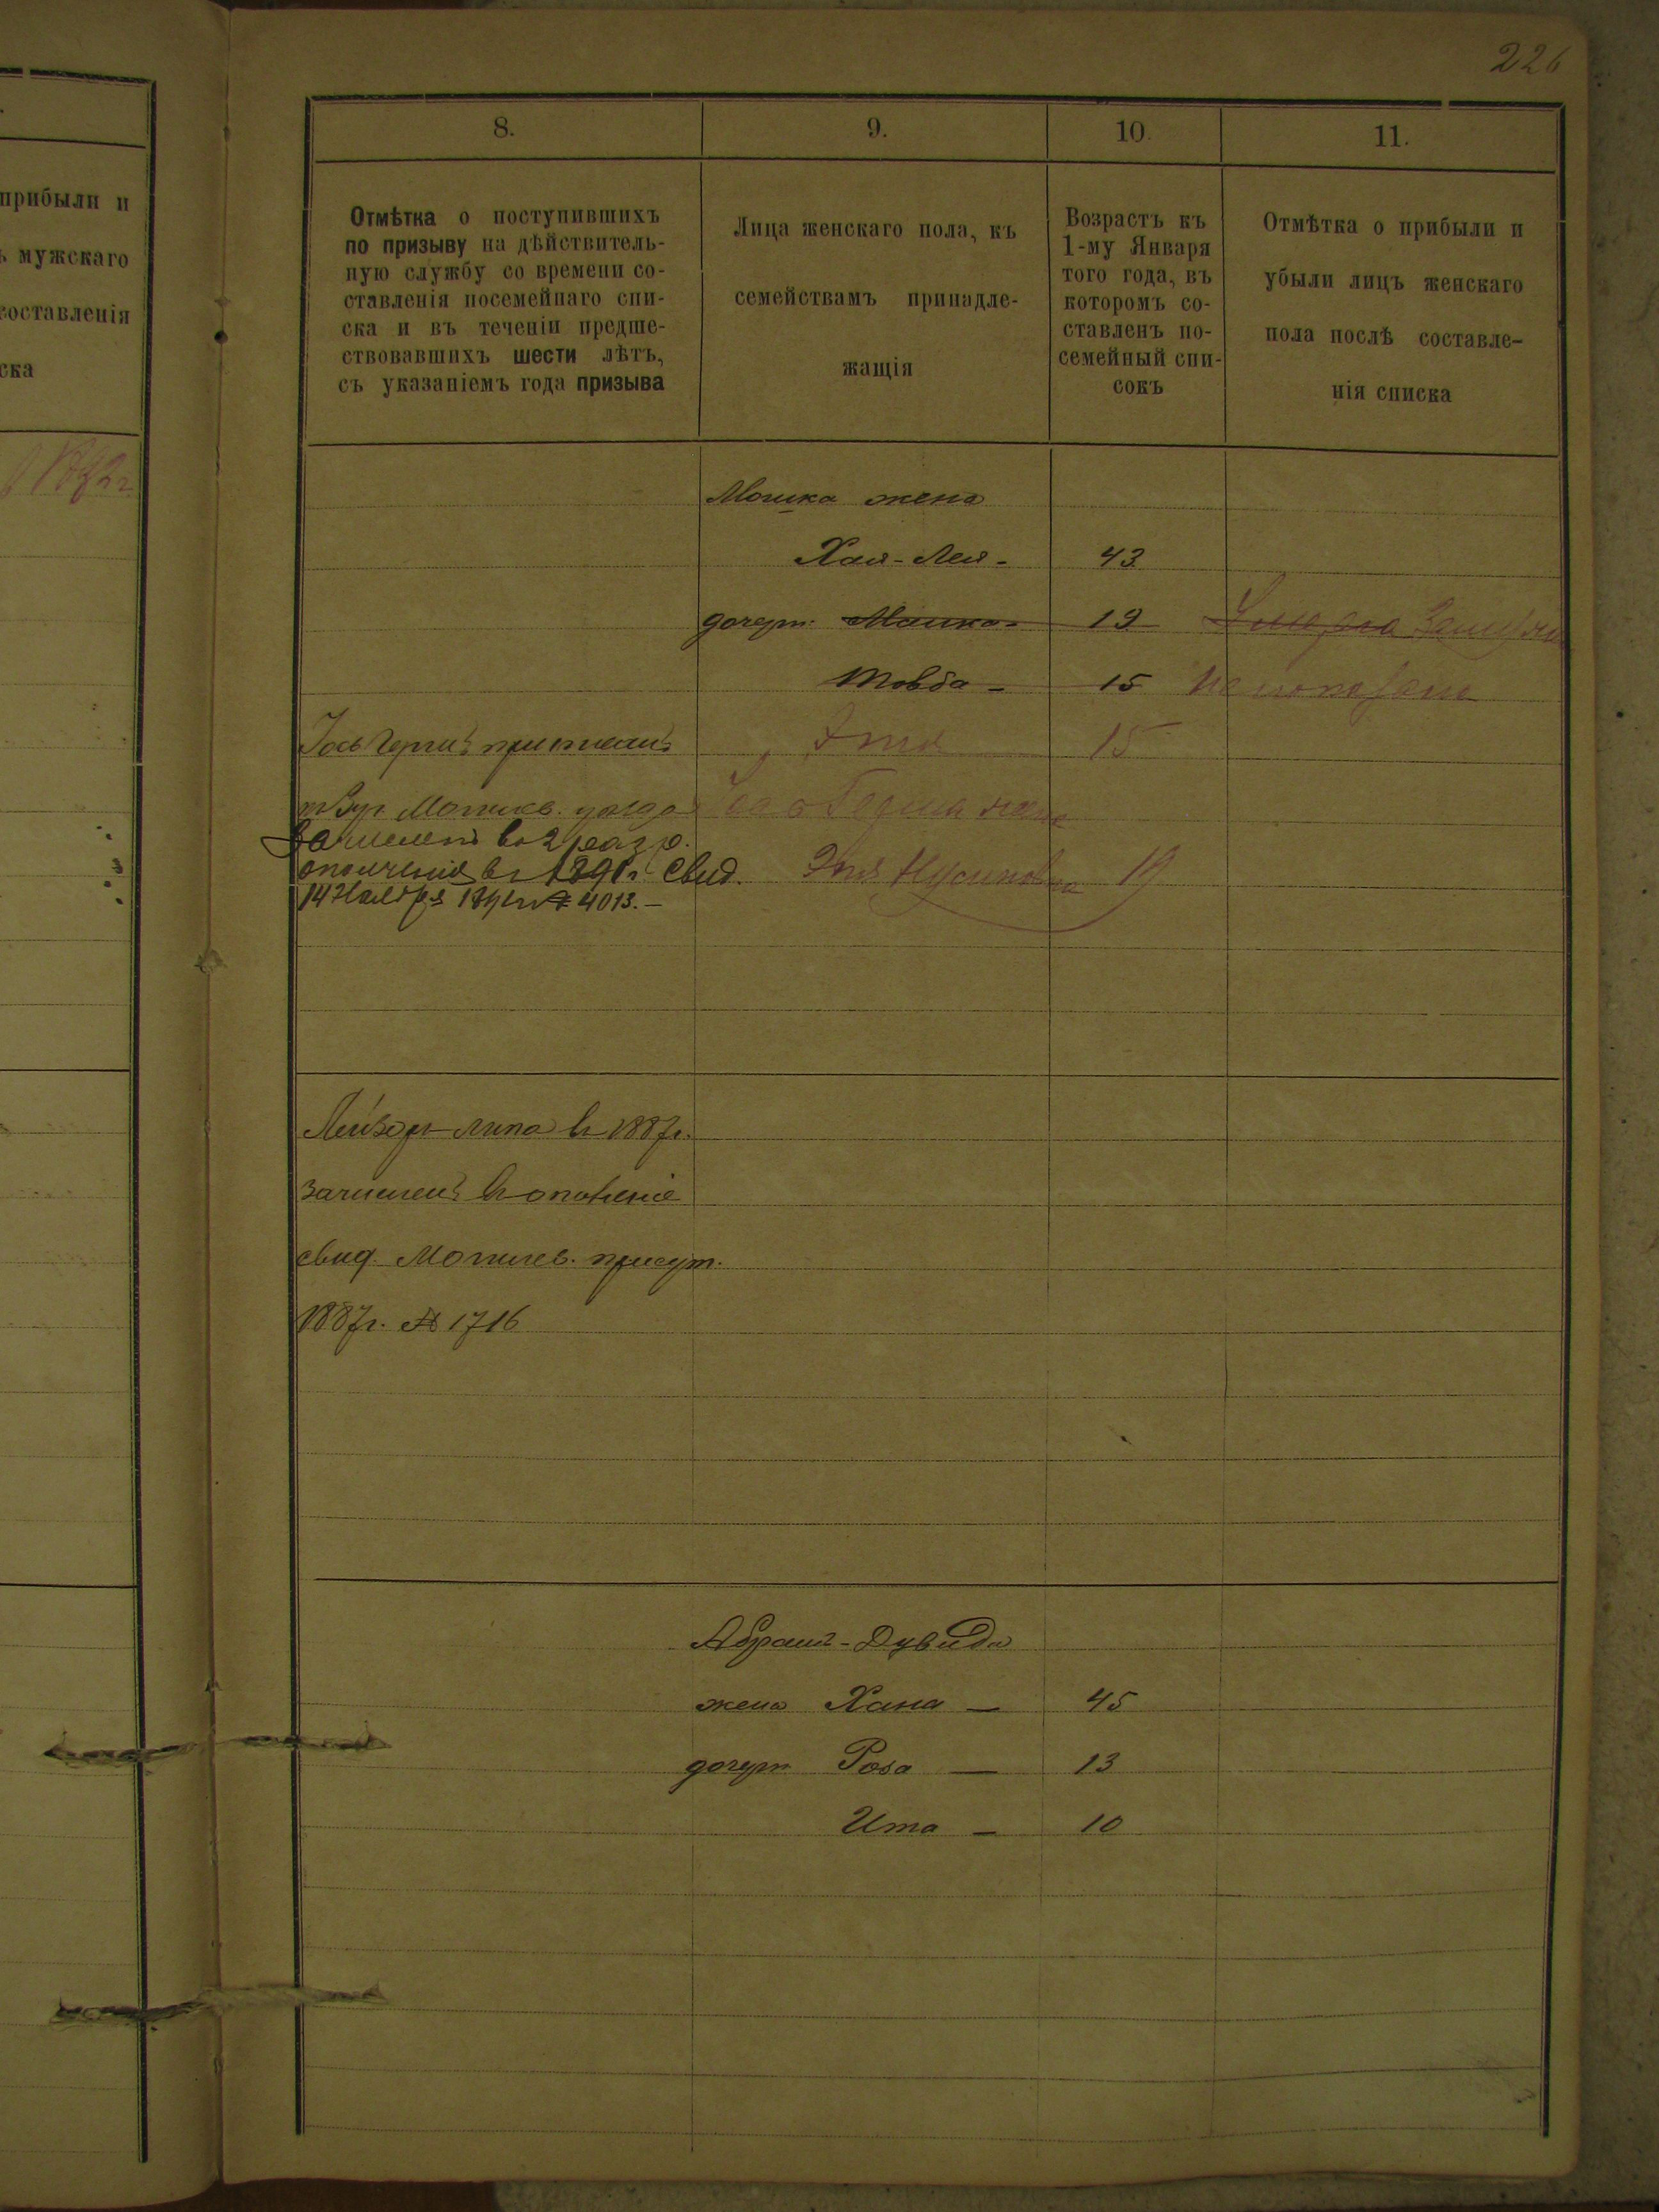 226
прибыли и
ь мужскаго
составленія
ска
8.
9.
10.
11.
Отмѣтка о поступившихъ
по призыву на дѣйствитель-
ную службу со времени со-
ставленія посемейнаго спи-
ска и въ теченіи предше-
ствовавшихъ шести лѣтъ,
съ указаніемъ года призыва
Лица женскаго пола, къ
семействамъ принадле-
жащія
Возрастъ къ
1-му Января
того года, въ
которомъ со-
ставленъ по-
семейный спи-
сокъ
Отмѣтка о прибыли и
убыли лицъ женскаго
пола послѣ составле-
нія списка
Мошка жена
Хая-Лея - 43
дочери 19
Товба - 15 не показана
Іось приписанъ Этя 15
Могилев. уѣзда жена
зачисленъ во 2 разр.
ополченія въ 1891 г. свид. 19
14 Ноября № 4013.-
Лейзеръ-Липа въ 1887 г.
зачисленъ въ ополченіе
свид. Могилев. присут.
1887 г. № 1716
Абрамъ-Дувида
жена Хана - 45
дочери Роза - 13
Ита - 10